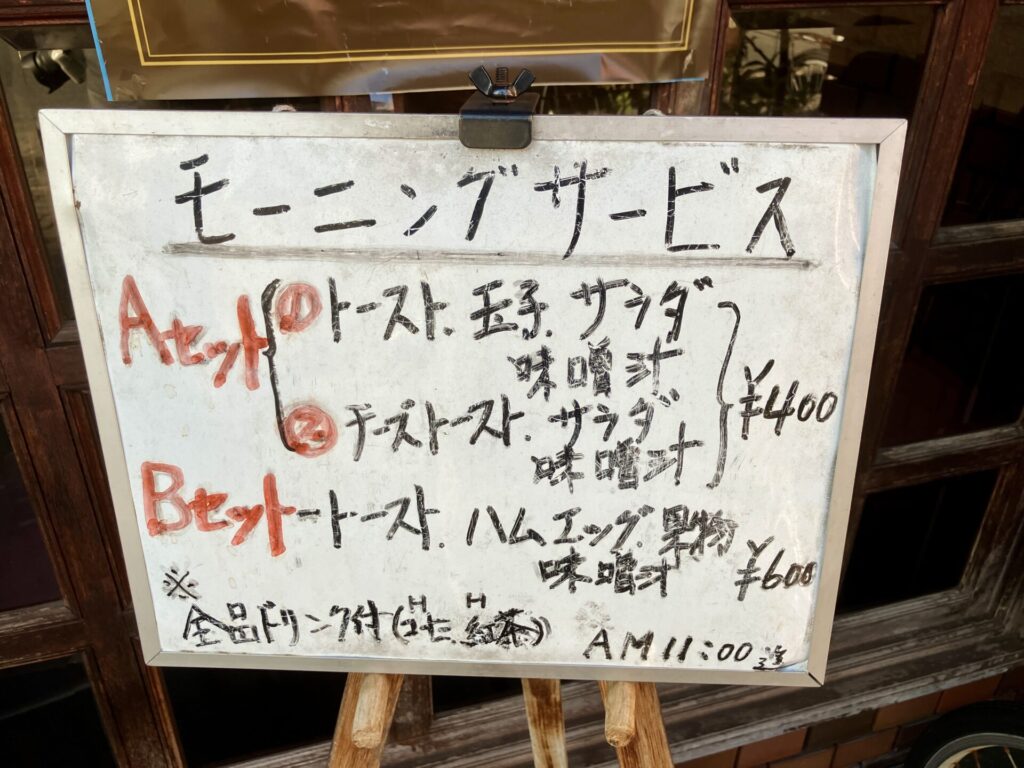 モーニングサービス
Aセット ① トースト.玉子.サラダ
味噌汁
② チーズトースト.サラダ
味噌汁
¥400
Bセットートースト.ハムエッグ.果物
味噌汁 ¥600
※
全品ドリンク付(Hコーヒ.H紅茶)
AM11:00迄